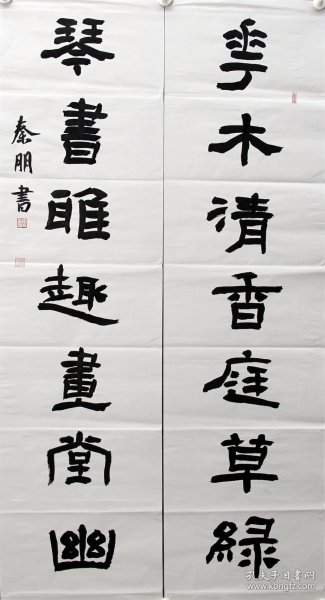 華木清香庭草綠
琴書雅趣畫堂幽
秦朋書
孔夫子旧书网
kongfz.com